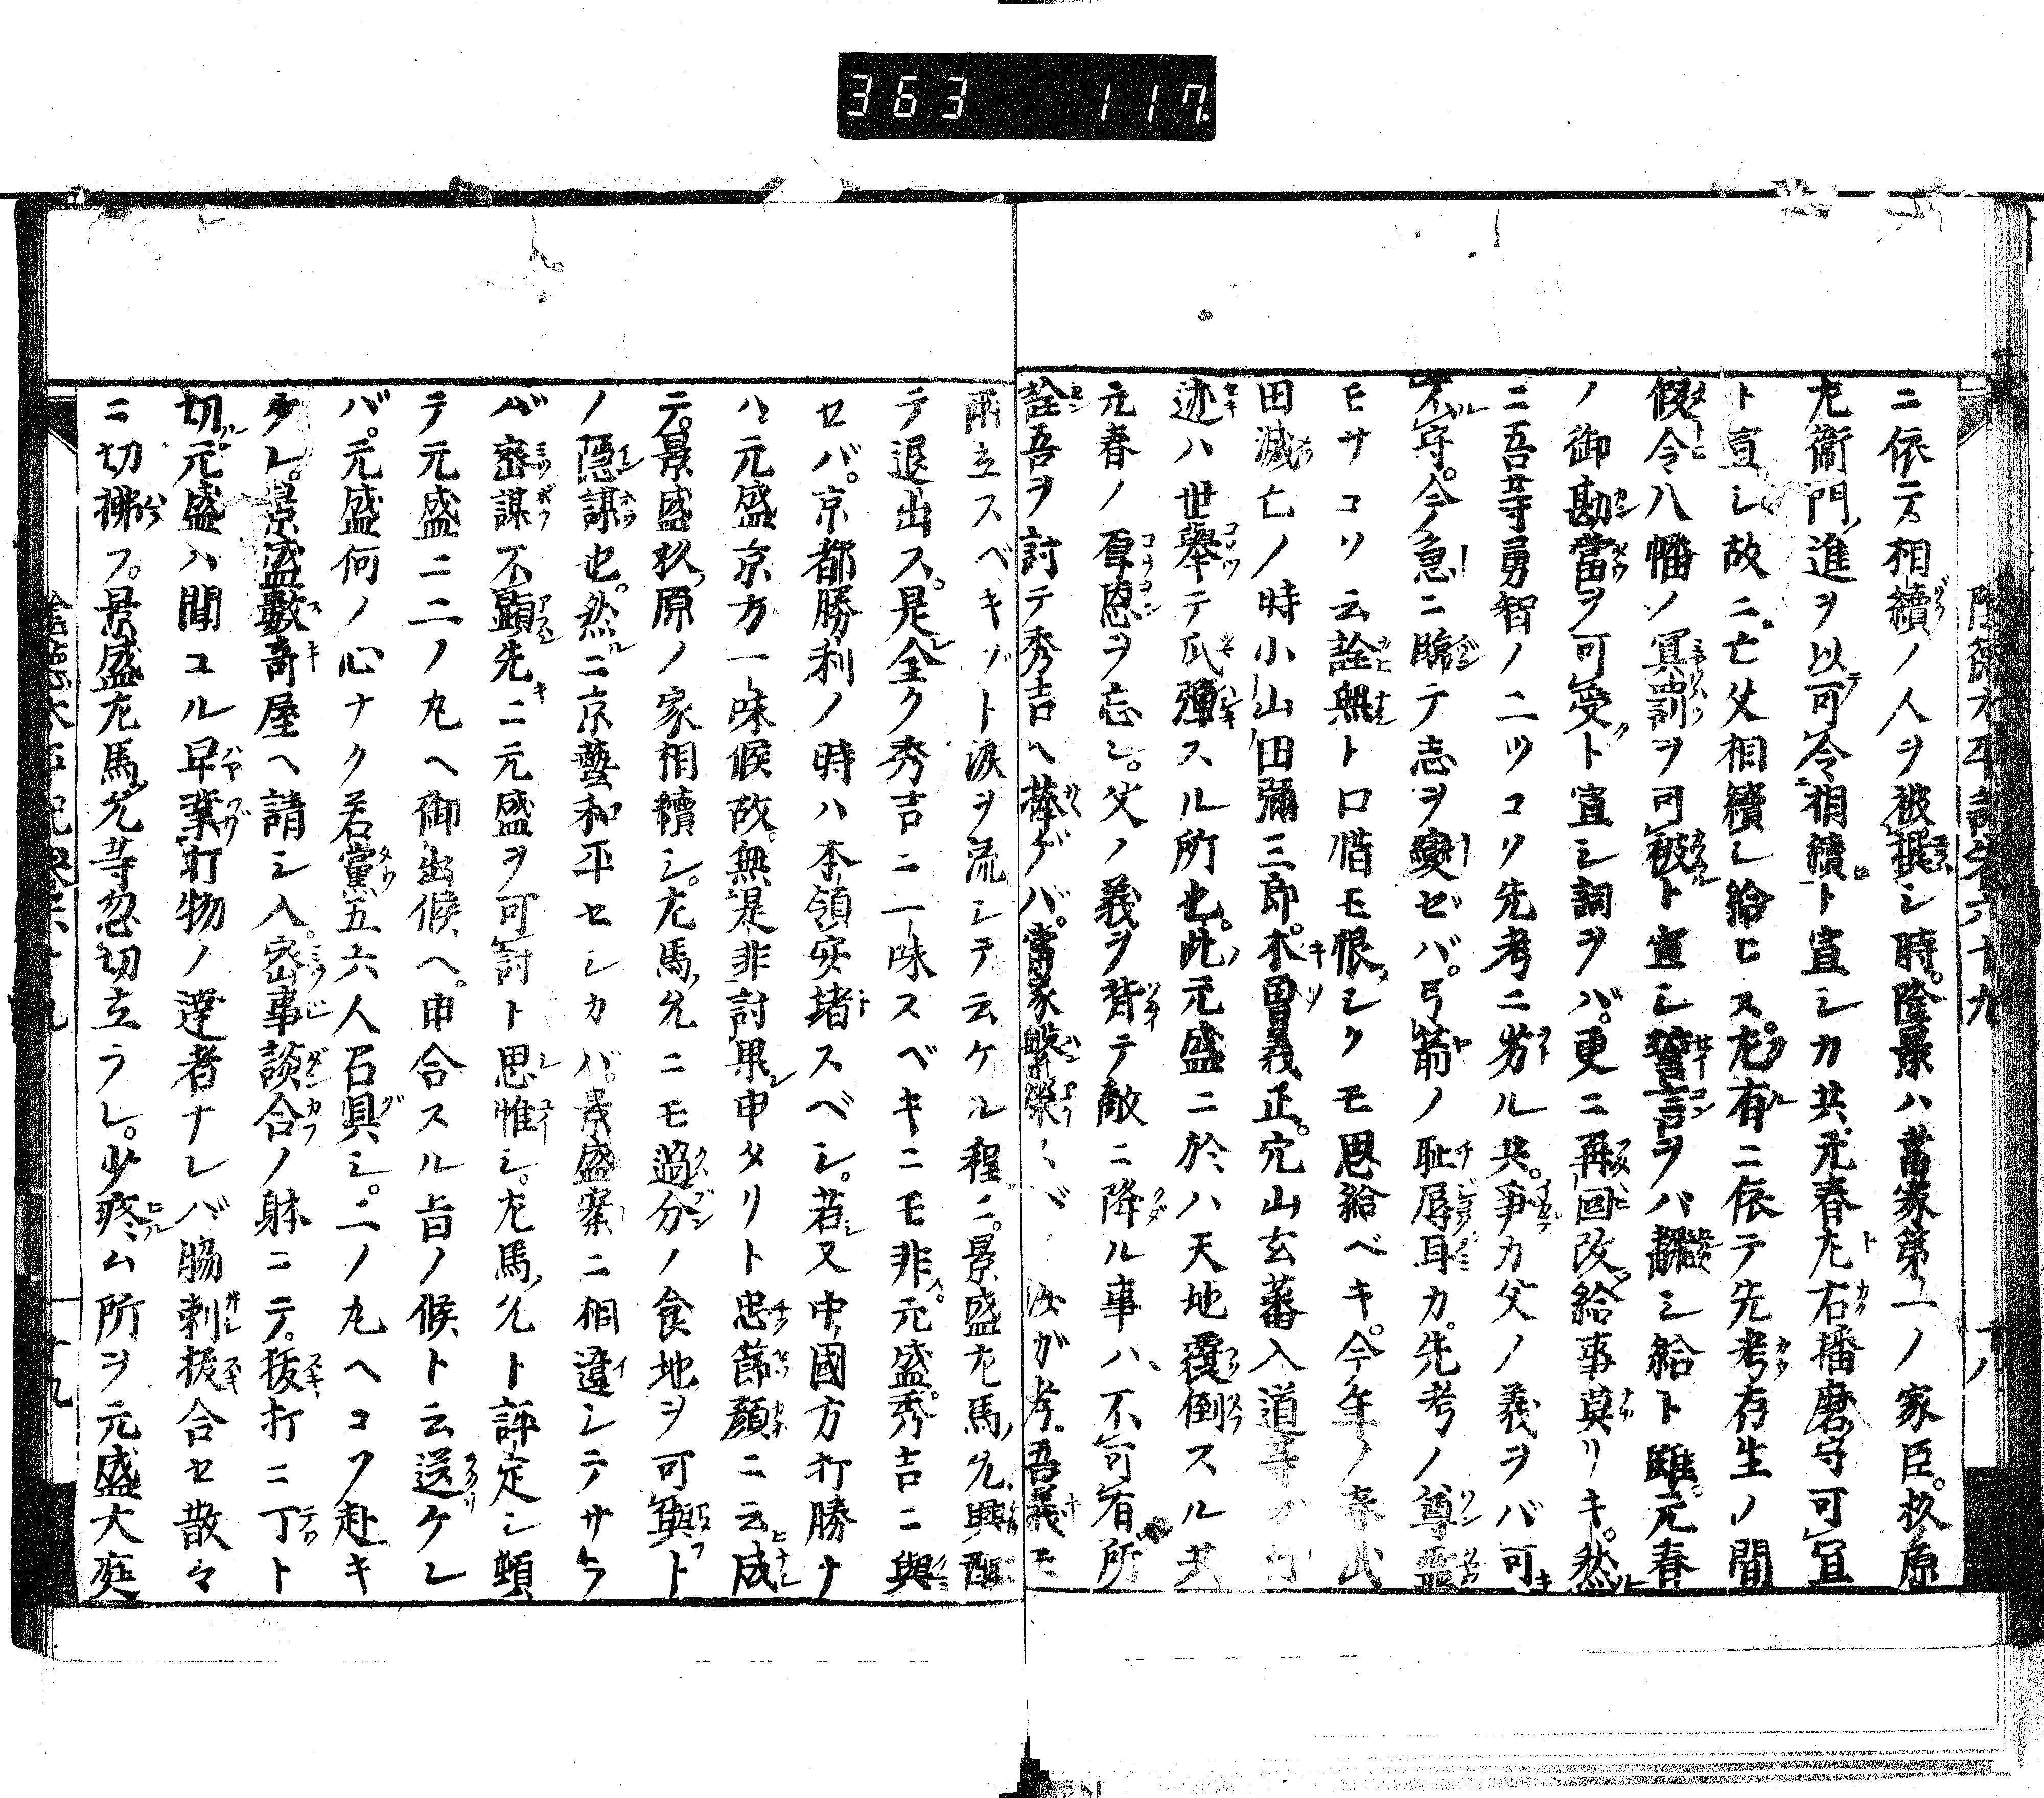 363 117
陰德太平記卷六十九 十八
ニ依テ相續ノ人ヲ被撰シ時。隆景ハ當家第一ノ家臣。杦原
左衞門進ヲ以可令相續ト宣シカ共元春左右播磨守可宜
ト宣シ故ニ。亡父相續シ給ヒヌ。左有ニ依テ先考存生ノ間
假令八幡ノ冥罰ヲ可被ト宣シ誓言ヲバ飜シ給ト雖元春
ノ御勘當ヲ可受ト宣シ詞ヲバ。更ニ再回改給事莫リキ。然
ニ吾等勇智ノ二ツコソ先考ニ劣ル共。爭カ父ノ義ヲバ可
不守。今急ニ臨テ志ヲ變ゼバ。弓箭ノ耻辱耳カ。先考ノ尊靈
モサコソ云詮無ト口惜モ恨シクモ思給ベキ。今年ノ春武
田滅亡ノ時小山田彌三郎。木曽義正。穴山玄蕃入道等ガ行
迹ハ世舉テ爪彈スル所也。此元盛ニ於ハ天地覆倒スル共
元春ノ厚恩ヲ忘レ。父ノ義ヲ背テ敵ニ降ル事ハ、不可有所
詮吾ヲ討テ秀吉ヘ捧ゲバ。當家繁榮 汝が孝吾義モ
兩立スベキゾト淚ヲ流シテ云ケル程ニ。景盛左馬允興醒
テ退出ス。是全ク秀吉ニ一味スベキニモ非。元盛。秀吉ニ與
セバ。京都勝利ノ時ハ本領安堵スベシ。若又中國方打勝ナ
ハ元盛京方一味候故。無是非討果申タリト忠節顏ニ云成
テ。景盛杦原ノ家相續シ。左馬允ニモ過分ノ食地ヲ可與ト
ノ隱謀也。然ニ京藝和平セシカバ。景盛案ニ相違シテサラ
バ密謀不顯先ニ元盛ヲ可討ト思惟シ。左馬允ト評定シ頓
テ元盛ニ二ノ丸ヘ御出候ヘ。申合スル旨ノ候ト云送ケレ
バ。元盛何ノ心ナク若黨五六人召具シ。二ノ丸ヘコソ赴キ
ケレ。景盛數奇屋ヘ請シ入。密事談合ノ躰ニテ。拔打ニ丁ト
切。元盛ハ聞ユル早業打物ノ達者ナレバ脇刺拔合セ散々
ニ切拂フ。景盛左馬允等忽切立ラレ。少疼ム所ヲ元盛大庭
陰德太平記卷六十九 十九